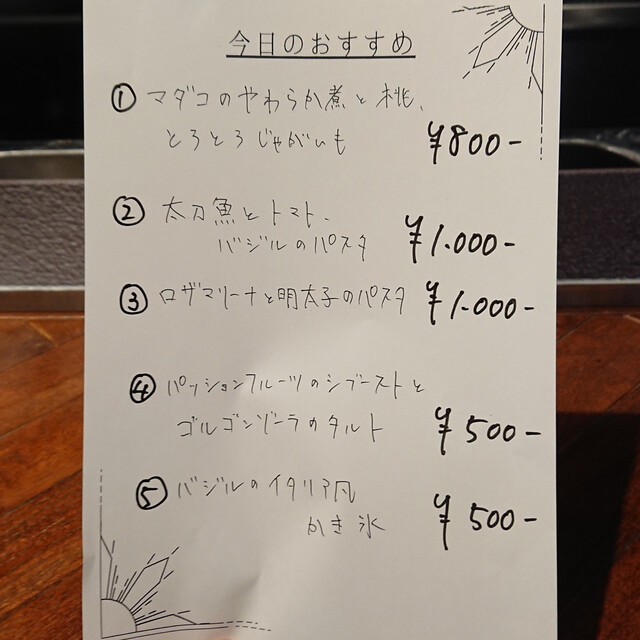 今日のおすすめ
① マダコのやわらか煮と桃、
とろとろじゃがいも ¥800-
② 太刀魚とトマト、
バジルのパスタ ¥1.000-
③ ロザマリーナと明太子のパスタ ¥1.000-
④ パッションフルーツのシブーストと
ゴルゴンゾーラのタルト ¥500-
⑤ バジルのイタリア風
かき氷 ¥500-